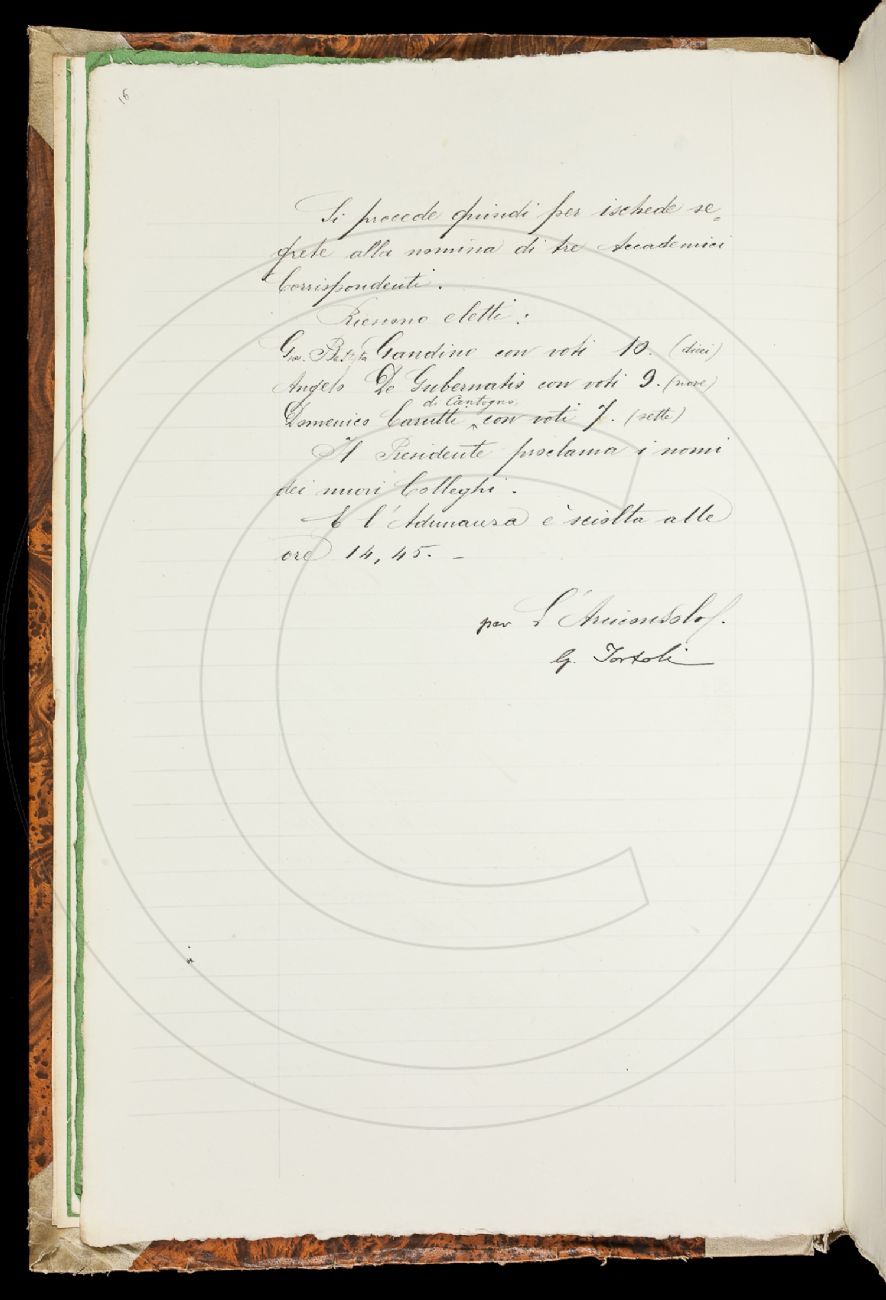 16
Si procede quindi per ischede se=
grete alla nomina di tre Accademici
Corrispondenti.
Riescono eletti:
Gio. Batista Gandino con voti 10. (dieci)
Angelo De Gubernatis con voti 9. (nove)
di Cantogno
Domenico Carutti ^ con voti 7. (sette)
Il Presidente proclama i nomi
dei nuovi Colleghi.
E l'Adunanza è sciolta alle
ore 14,45. –
per L'Arciconsolo
G. Tortoli